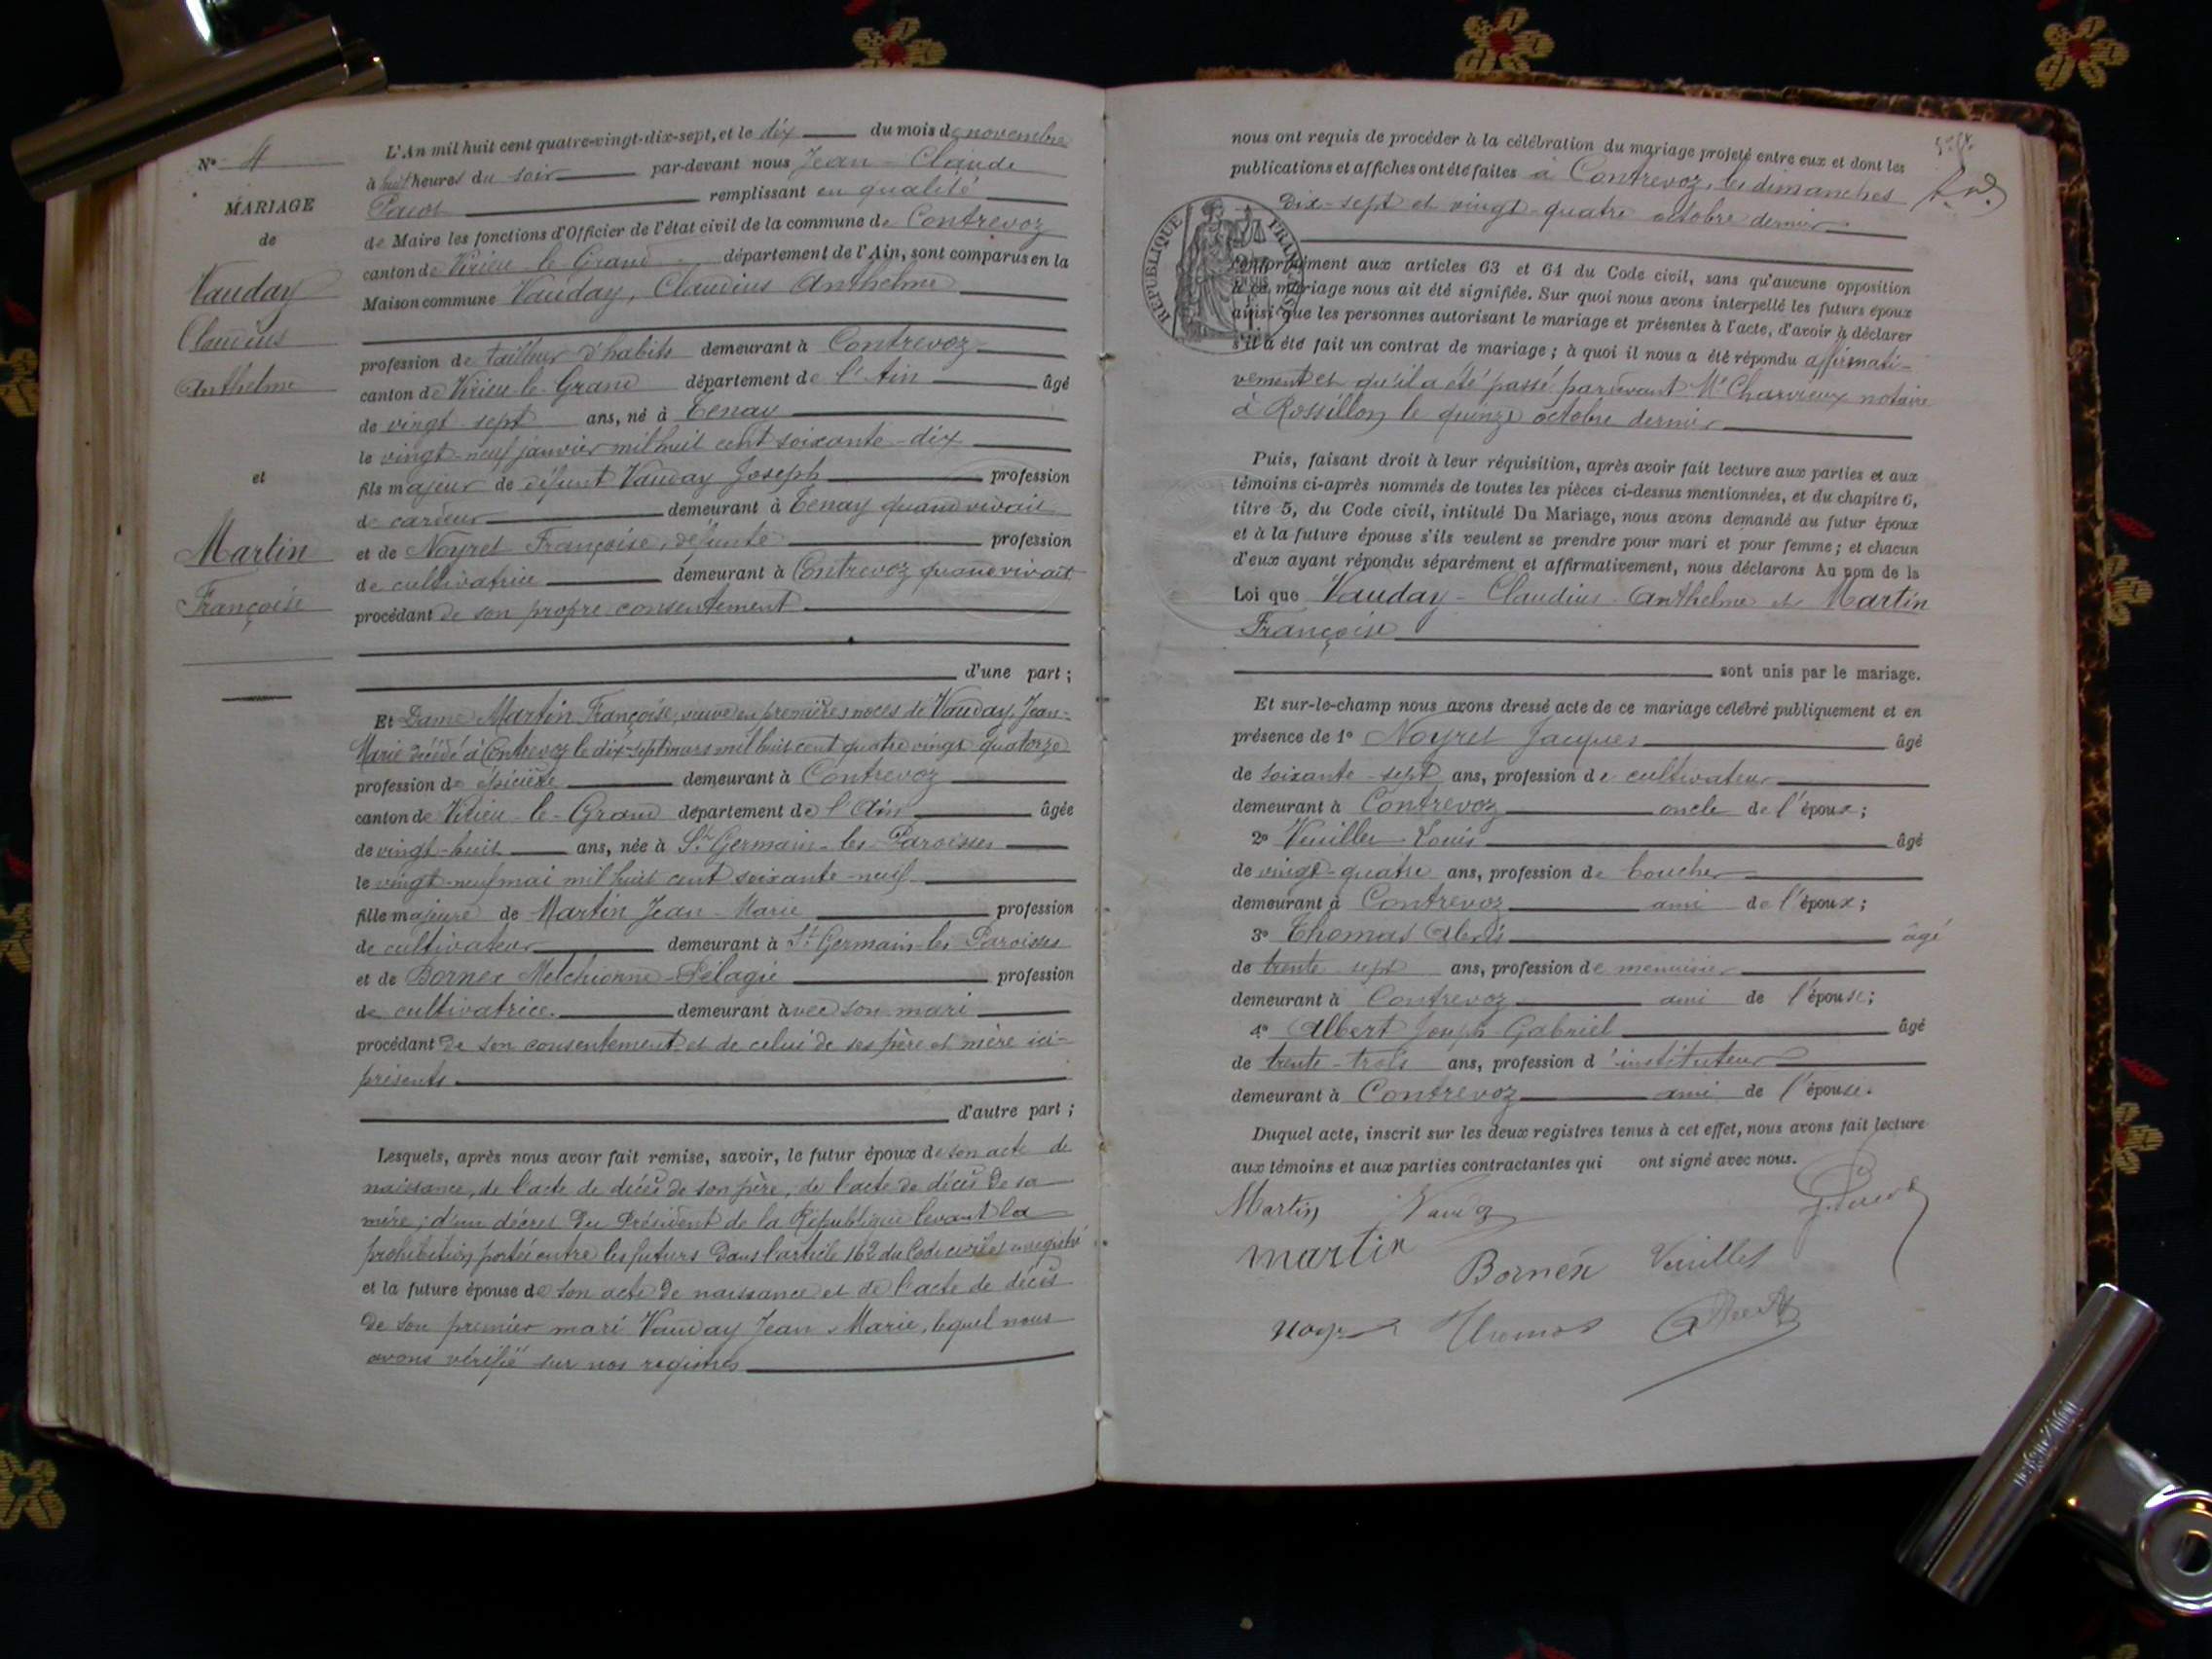 N° 4
MARIAGE
de
Vauday
Claudius
Anthelme
et
Martin
Françoise
L'An mil huit cent quatre-vingt-dix-sept, et le dix du mois de novembre
à huit heures du soir par-devant nous Jean-Claude
remplissant en qualité
de Maire les fonctions d'Officier de l'état civil de la commune de Contrevoz
canton de Virieu-le-Grand département de l'Ain, sont comparus en la
Maison commune Vauday, Claudius Anthelme
profession de tailleur d'habits demeurant à Contrevoz
canton de Virieu-le-Grand département de l'Ain âgé
de vingt-sept ans, né à Tenay
le vingt-neuf janvier mil huit cent soixante-dix
fils majeur de défunt Vauday Joseph profession
de cardeur demeurant à Tenay quand vivait
et de Noyret Françoise, défunte profession
de cultivatrice demeurant à Contrevoz quand vivait
procédant de son propre consentement
d'une part ;
Et Dame Martin Françoise, veuve en premières noces de Vauday Jean-
Marie décédé à Contrevoz le dix-sept mars mil huit cent quatre vingt quatorze
profession de épicière demeurant à Contrevoz
canton de Virieu-le-Grand département de l'Ain âgée
de vingt-huit ans, née à St Germain-les-Paroisses
le vingt-neuf mai mil huit cent soixante-neuf
fille majeure de Martin Jean-Marie profession
de cultivateur demeurant à St Germain-les-Paroisses
et de Bornex Melchionne-Pélagie profession
de cultivatrice demeurant avec son mari
procédant de son consentement et de celui de ses père et mère ici-
présents
d'autre part ;
Lesquels, après nous avoir fait remise, savoir, le futur époux de son acte de
naissance, de l'acte de décès de son père, de l'acte de décès de sa
mère ; d'un décret du Président de la République levant la
prohibition portée entre les futurs dans l'article 162 du Code civil et enregistré
et la future épouse de son acte de naissance et de l'acte de décès
de son premier mari Vauday Jean-Marie, lequel nous
avons vérifié sur nos registres
nous ont requis de procéder à la célébration du mariage projeté entre eux et dont les
publications et affiches ont été faites à Contrevoz, les dimanches
dix-sept et vingt-quatre octobre dernier
RÉPUBLIQUE FRANÇAISE
conformément aux articles 63 et 64 du Code civil, sans qu'aucune opposition
à ce mariage nous ait été signifiée. Sur quoi nous avons interpellé les futurs époux
ainsi que les personnes autorisant le mariage et présentes à l'acte, d'avoir à déclarer
s'il a été fait un contrat de mariage ; à quoi il nous a été répondu affirmati-
vement et qu'il a été passé pardevant Me Charvieux notaire
à Rossillon le quinze octobre dernier
Puis, faisant droit à leur réquisition, après avoir fait lecture aux parties et aux
témoins ci-après nommés de toutes les pièces ci-dessus mentionnées, et du chapitre 6,
titre 5, du Code civil, intitulé Du Mariage, nous avons demandé au futur époux
et à la future épouse s'ils veulent se prendre pour mari et pour femme ; et chacun
d'eux ayant répondu séparément et affirmativement, nous déclarons Au nom de la
Loi que Vauday-Claudius-Anthelme et Martin
Françoise
sont unis par le mariage.
Et sur-le-champ nous avons dressé acte de ce mariage célébré publiquement et en
présence de 1° Noyret Jacques âgé
de soixante-sept ans, profession de cultivateur
demeurant à Contrevoz oncle de l'époux ;
2° Veuillet Louis âgé
de vingt-quatre ans, profession de boucher
demeurant à Contrevoz ami de l'époux ;
3° Thomas Alexis âgé
de trente-sept ans, profession de menuisier
demeurant à Contrevoz ami de l'épouse ;
4° Albert Joseph-Gabriel âgé
de trente-trois ans, profession d'instituteur
demeurant à Contrevoz ami de l'épouse.
Duquel acte, inscrit sur les deux registres tenus à cet effet, nous avons fait lecture
aux témoins et aux parties contractantes qui ont signé avec nous.
Martin Vauday
martin Bornex Veuillet
Noyret Thomas Albert